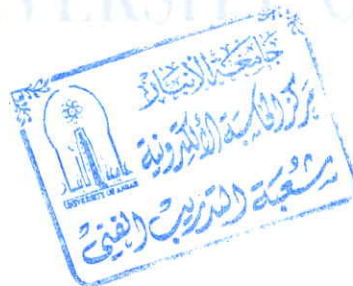 جامعة الأنبار
مركز الحاسبة الألكترونية
شعبة التدريب الفني
UNIVERSITY OF ANBAR